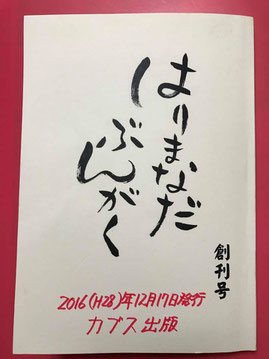 はりまなだ
しぶんがく
創刊号
2016(H28)年12月17日発行
カブス出版